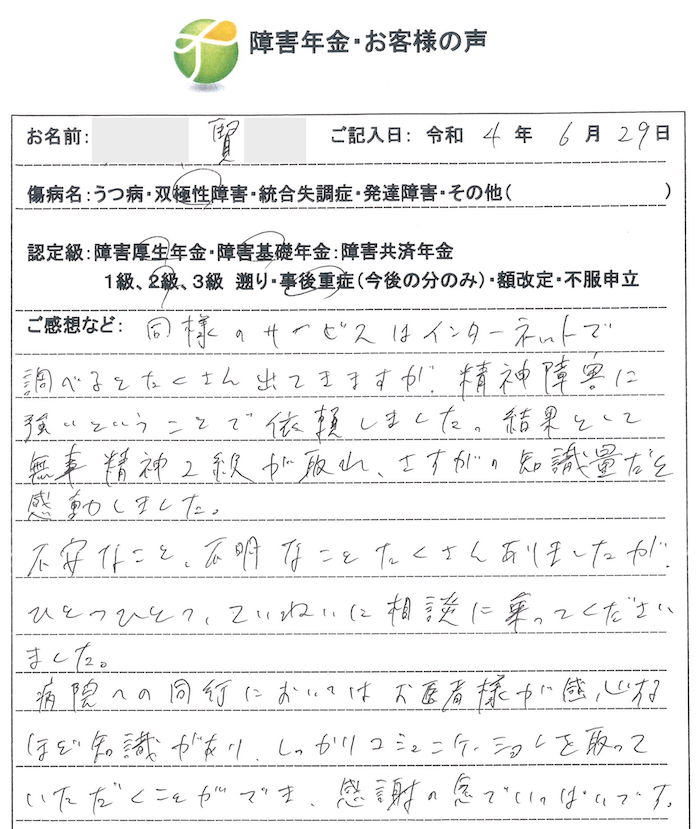 障害年金・お客様の声
お名前: 賢 ご記入日: 令和 4 年 6 月 29 日
傷病名:うつ病・双極性障害・統合失調症・発達障害・その他( )
認定級:障害厚生年金・障害基礎年金:障害共済年金
1級、2級、3級 遡り・事後重症(今後の分のみ)・額改定・不服申立
ご感想など: 同様のサービスはインターネットで
調べるとたくさん出てきますが、精神障害に
強いということで依頼しました。結果として
無事精神2級が取れ、さすがの知識量だと
感動しました。
不安なこと、不明なことたくさんありましたが、
ひとつひとつ、ていねいに相談に乗ってください
ました。
病院への同行においてはお医者様が感心する
ほど知識があり、しっかりコミュニケーションを取って
いただくことができ、感謝の念でいっぱいです。